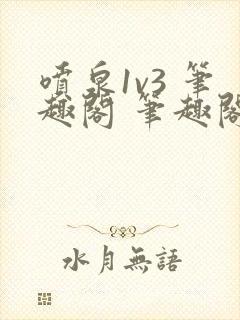 噴泉1v3 筆
趣閣 筆趣閣
水月無語